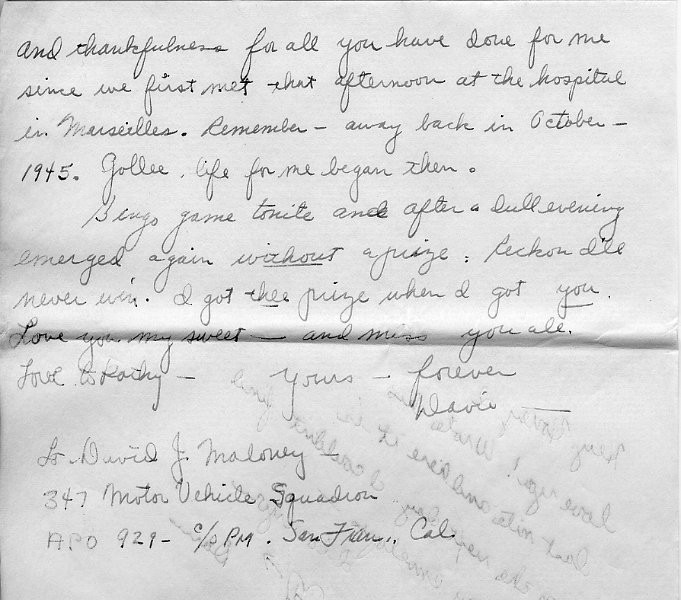 and thankfulness for all you have done for me
since we first met that afternoon at the hospital
in Marseilles. Remember - away back in October -
1945. Gollee, life for me began then.
Bingo game tonite and after a dull evening
emerged again without a prize. Reckon I'll
never win. I got thee prize when I got you.
Love you my sweet - and miss you all.
Love to Kathy - Yours - forever
Davie
Lt. David J. Maloney -
347 Motor Vehicle Squadron
APO 929 - c/o PM. San Fran., Cal.